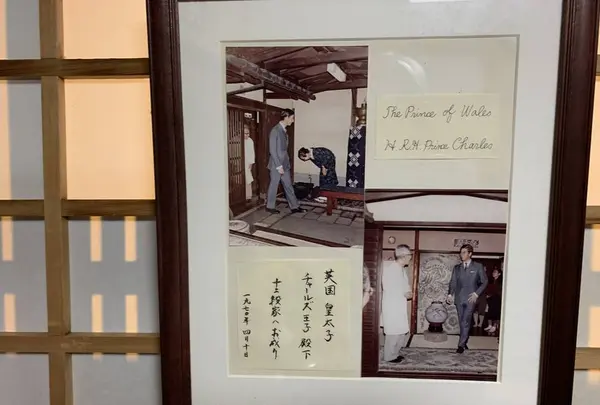 The Prince of Wales
H.R.H. Prince Charles
英国 皇太子
チャールズ 王子 殿下
十二段家へお成り
一九七〇年 四月十日